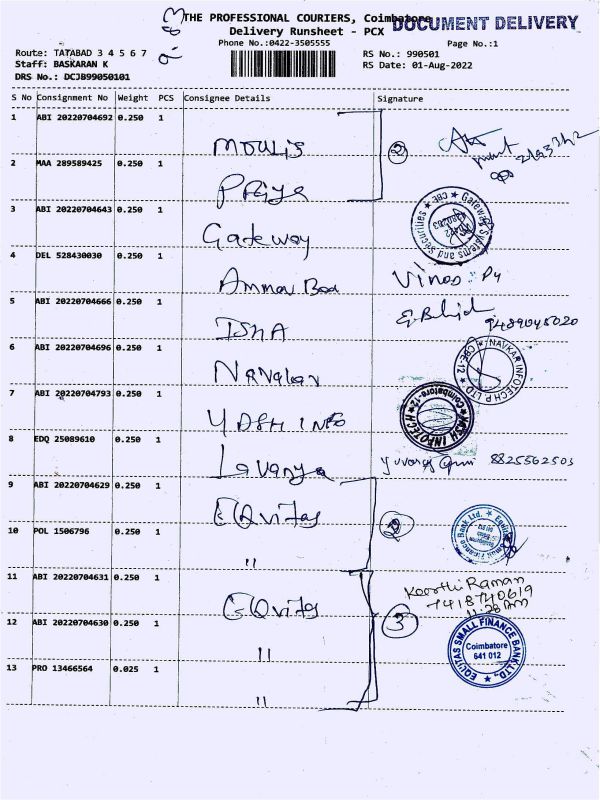 THE PROFESSIONAL COURIERS, Coimbatore
DOCUMENT DELIVERY
Delivery Runsheet - PCX
Phone No.:0422-3505555
Page No.:1
Route: TATABAD 3 4 5 6 7
RS No.: 990501
Staff: BASKARAN K
RS Date: 01-Aug-2022
DRS No.: DCJB99050101
S No Consignment No Weight PCS Consignee Details Signature
1 ABI 20220704692 0.250 1
MOULIS
2
2 MAA 289589425 0.250 1
Priya
3 ABI 20220704643 0.250 1
Gateway
Gateway Systems and Securities CBE
4 DEL 528430030 0.250 1
5 ABI 20220704666 0.250 1
ISHA
9489045020
6 ABI 20220704696 0.250 1
NAVKAR INFOTECH P LTD. CBE-12
7 ABI 20220704793 0.250 1
YASH INFO
YASH INFOTECH Coimbatore-12
8 EDQ 25089610 0.250 1
Lavanya
8825562503
9 ABI 20220704629 0.250 1
EQuitas
2
10 POL 1506796 0.250 1
"
11 ABI 20220704631 0.250 1
EQuitas
Keerthi Raman
7418740619
11:28 Am
3
12 ABI 20220704630 0.250 1
"
EQUITAS SMALL FINANCE BANK LTD.,
Coimbatore
641 012
13 PRO 13466564 0.025 1
"